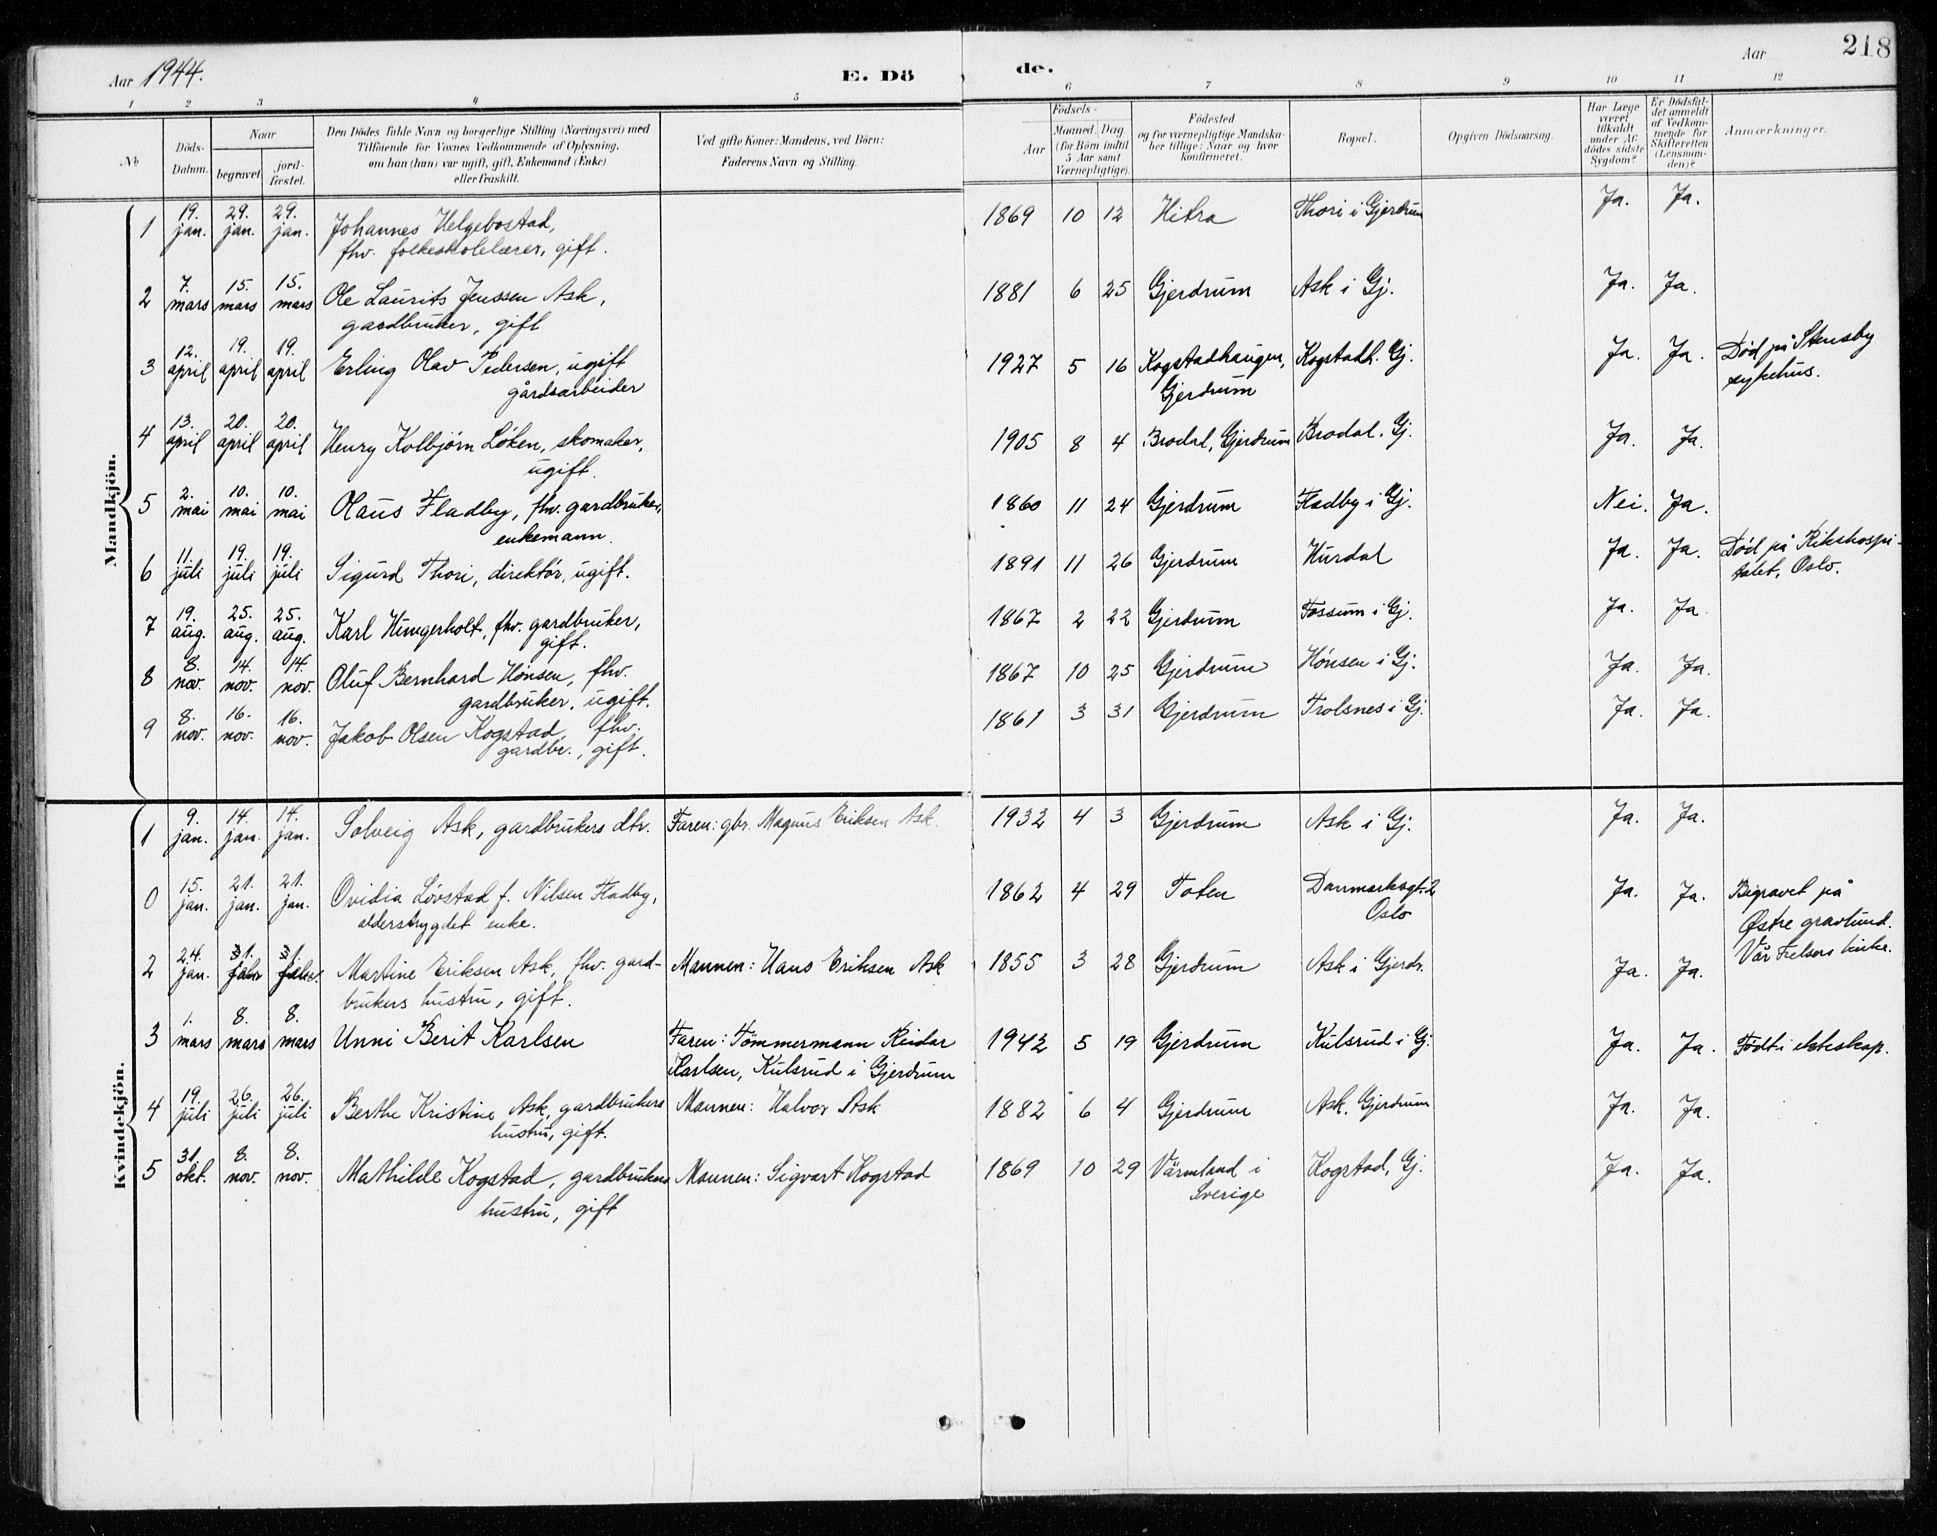 Aar 1944.
E. Dö
de.
Aar
218
1 2 3 4 5
6 7 8 9 10 11 12
No
Döds-
Datum.
Naar
begravet.
jord-
fæstet.
Den Dödes fulde Navn og borgerlige Stilling (Næringsvei) med
Tilföiende for Voxnes Vedkommende af Oplysning,
om han (hun) var ugift, gift, Enkemand (Enke)
eller fraskilt.
Ved gifte Koner: Mandens, ved Börn:
Faderens Navn og Stilling.
Födsels-
Aar
Maaned. Dag.
(for Börn indtil
5 Aar samt
Værnepligtige).
Födested
og for værnepligtige Mandska-
ber tillige: Naar og hvor
konfirmeret.
Bopæl.
Opgiven Dödsaarsag.
Har Læge
været
tilkaldt
under Af-
dödes sidste
Sygdom?
Er Dödsfal-
det anmeldt
af Vedkom-
mende for
Skifteretten
(Lensman-
den)?
Anmærkninger.
Mandkjön.
1 19. jan. 29. jan. 29. jan. Johannes Helgebostad, 1869 10 12 Hitra Thori i Gjerdrum Ja. Ja.
fhv. folkeskolelærer, gift.
2 7. mars 15. mars 15. mars Ole Laurits Jenssen Ask, 1881 6 25 Gjerdrum Ask i Gj. Ja. Ja.
gardbruker, gift
3 12. april 19. april 19. april Erling Olav Pedersen, ugift 1927 5 16 Kogstadhaugen, Kogstadh. Gj. Ja. Ja. Död på Stensby
gårdsarbeider Gjerdrum sykehus.
4 13. april 20. april 20. april Henry Kolbjörn Löken, skomaker, 1905 8 4 Brodal, Gjerdrum Brodal. Gj. Ja. Ja.
ugift.
5 2. mai 10. mai 10. mai Olaus Fladby, fhv. gardbruker, 1860 11 24 Gjerdrum Fladby i Gj. Nei. Ja.
enkemann.
6 11. juli 19. juli 19. juli Sigurd Thori, direktör, ugift. 1891 11 26 Gjerdrum Hurdal Ja. Ja. Död på Rikshospi-
talet, Oslo.
7 19. aug. 25. aug. 25. aug. Karl Hungerholt, fhv. gardbruker, 1867 2 22 Gjerdrum Fossum i Gj. Ja. Ja
gift.
8 8. nov. 14. nov. 14. nov. Oluf Bernhard Hönsen, fhv. 1867 10 25 Gjerdrum Hönsen i Gj. Ja. Ja.
gardbruker, ugift.
9 8. nov. 16. nov. 16. nov. Jakob Olsen Kogstad, fhv. 1861 3 31 Gjerdrum Trolsnes i Gj. Ja. Ja.
gardbr., gift.
Kvindekjön.
1 9. jan. 14. jan. 14. jan. Solveig Ask, gardbrukers dtr. Faren: gbr. Magnus Eriksen Ask. 1932 4 3 Gjerdrum Ask i Gj. Ja. Ja.
0 15. jan. 21. jan. 21. jan. Ovidia Lövstad f. Nilsen Fladby, 1862 4 29 Toten Danmarksgt. 2 Ja. Ja. Begravet på
alderstrygdet enke. Oslo Östre gravlund.
Vår Frelsers kirke.
2 24. jan. 31. febr 31. febr. Martine Eriksen Ask, fhv. gard- Mannen: Hans Eriksen Ask 1855 3 28 Gjerdrum Ask i Gjerdr. Ja. Ja.
brukers hustru, gift.
3 1. mars 8. mars 8. mars Unni Berit Karlsen Faren: Tömmermann Reidar 1942 5 19 Gjerdrum Kulsrud i Gj. Ja. Ja. Födt i ekteskap.
Karlsen, Kulsrud i Gjerdrum
4 19. juli 26. juli 26. juli Berthe Kristine Ask, gardbrukers Mannen: Halvor Ask 1882 6 4 Gjerdrum Ask, Gjerdrum Ja. Ja.
hustru, gift.
5 31. okt. 8. nov. 8. nov. Mathilde Kogstad, gardbrukers Mannen: Sigvart Kogstad 1869 10 29 Värmland i Kogstad, Gj. Ja. Ja.
hustru, gift Sverige